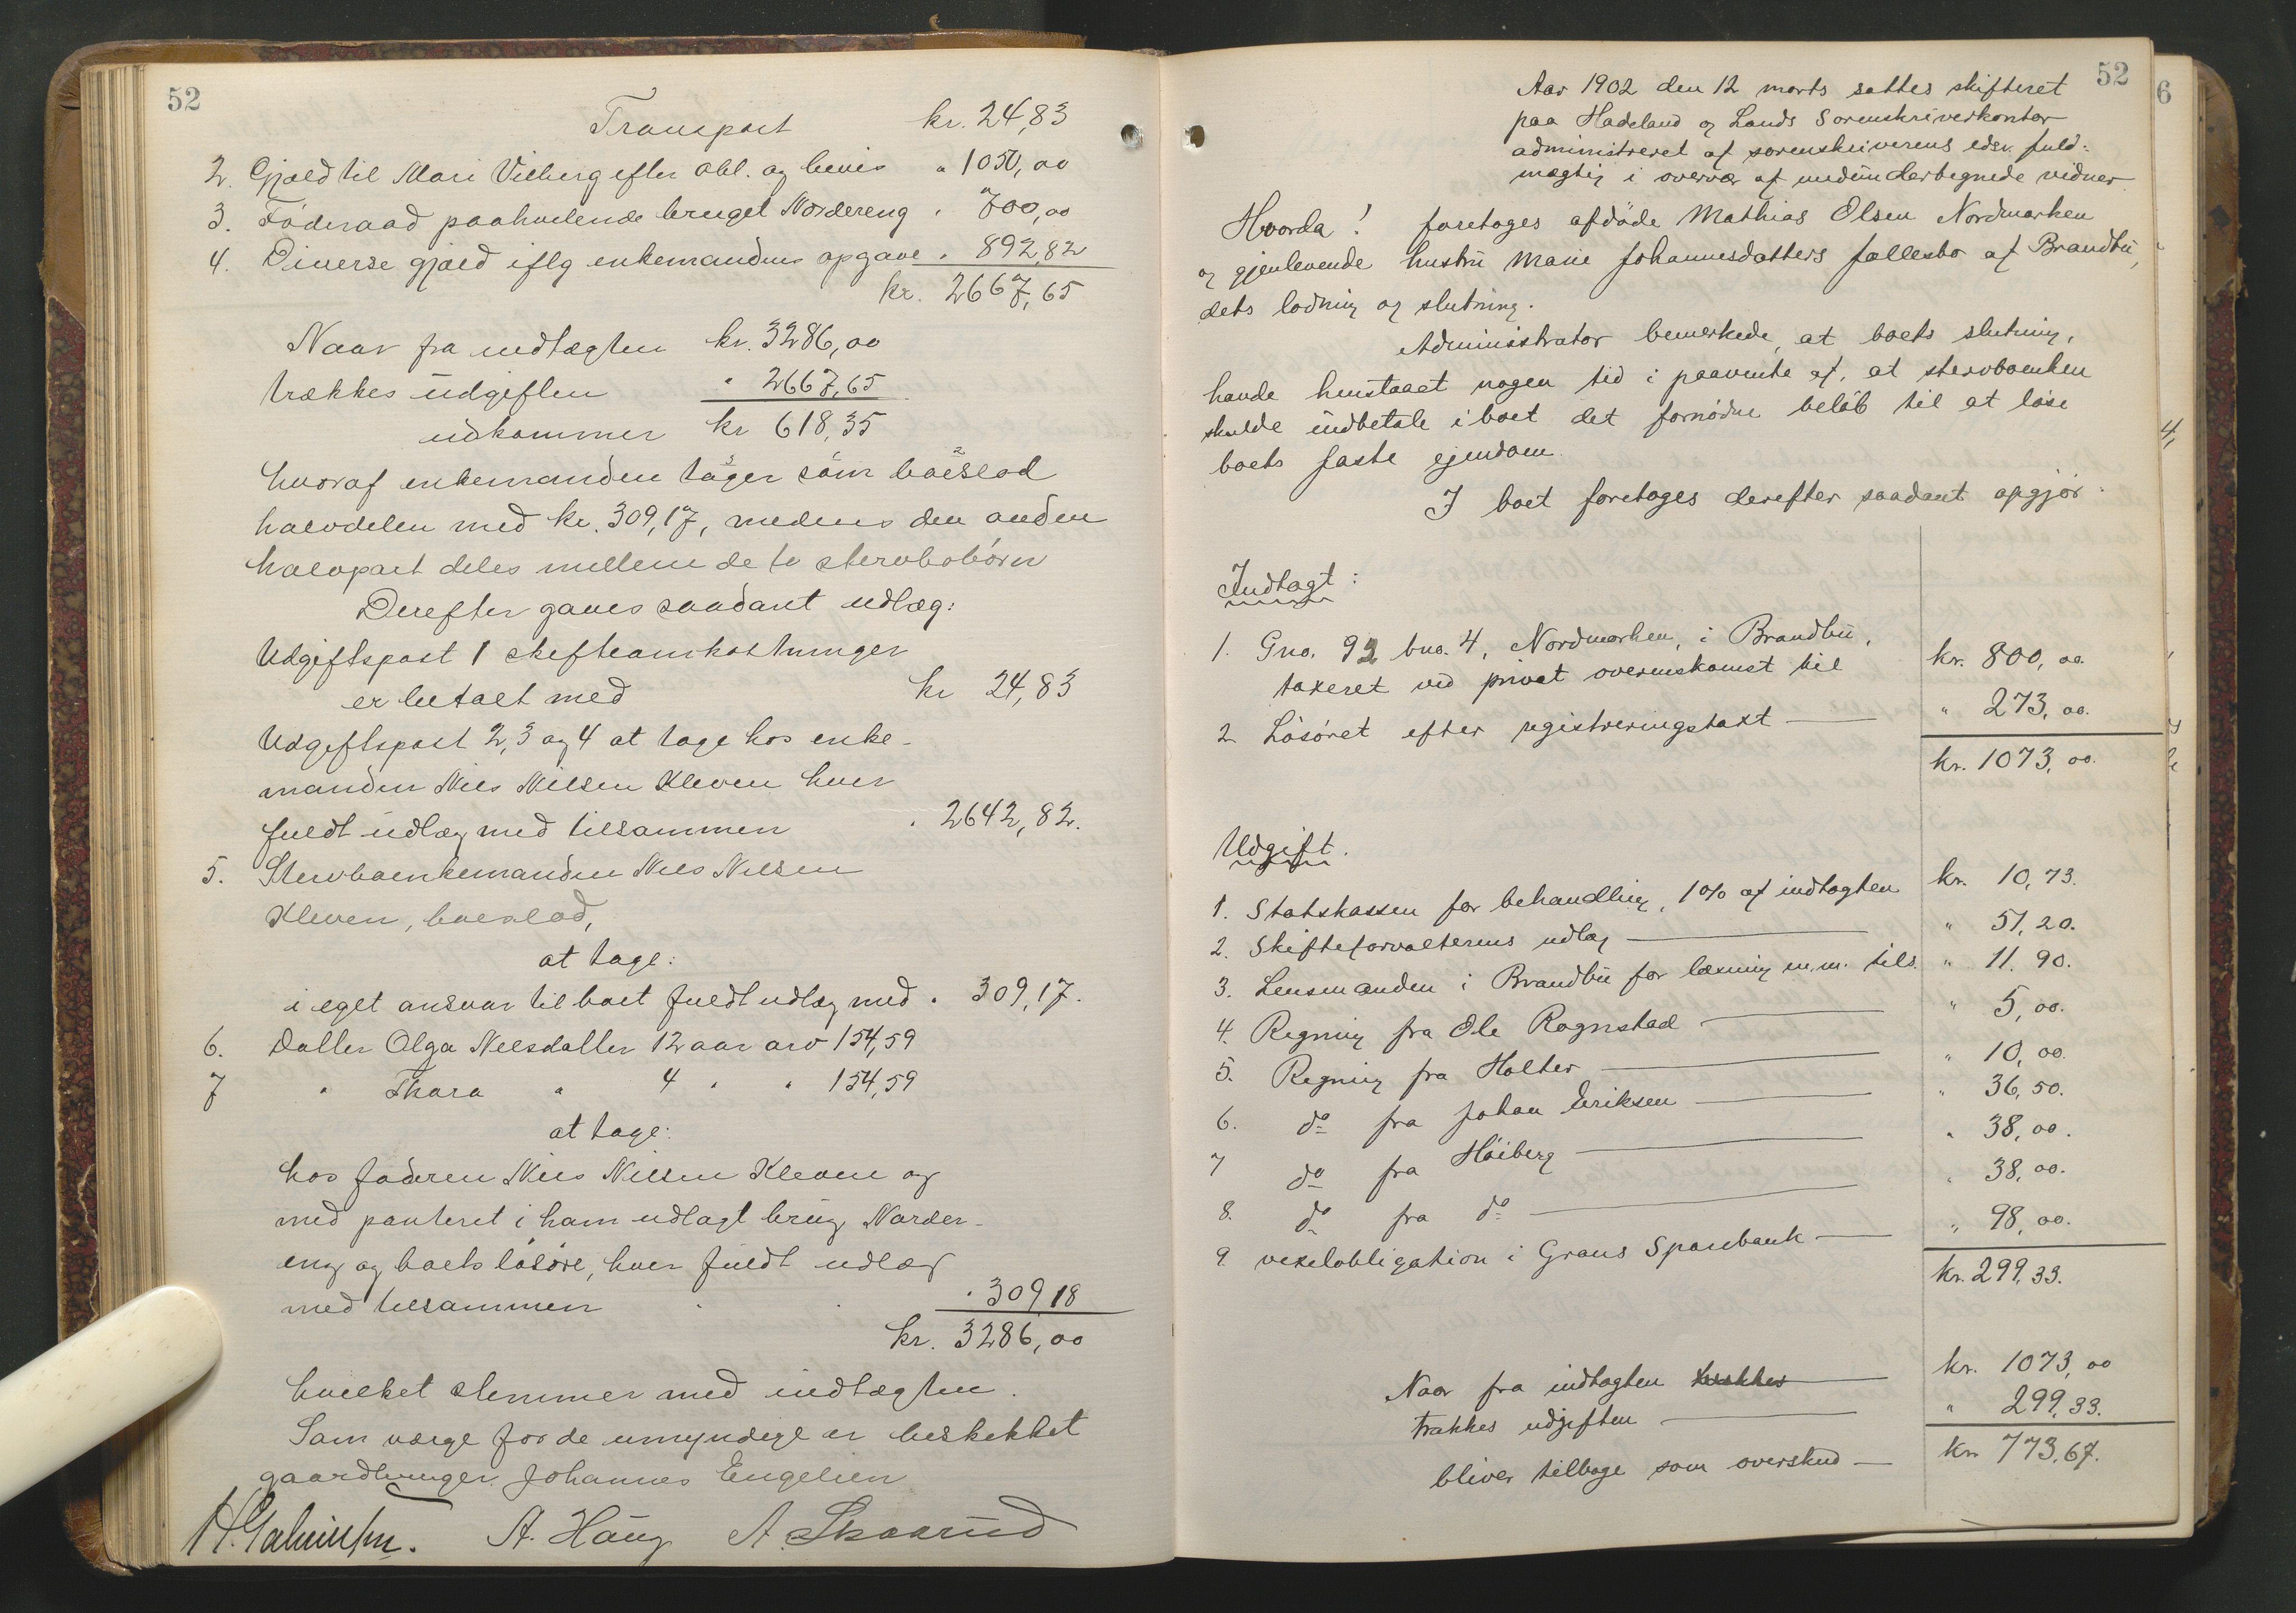 52
Transport kr. 24,83
2. Gjæld til Mari Vilberg efter obl. og bevis " 1050,00
3. Föderaad paahvilende bruget Nordereng " 700,00
4. Diverse gjæld iflg enkemandens opgave " 892,82
kr. 2667,65
Naar fra indtægten kr. 3286,00
trækkes udgiften " 2667,65
udkommer kr 618,35
hvoraf enkemanden tager som boeslod
halvdelen med kr. 309,17, medens den anden
halvpart deles mellem de to stervbobörn
Derefter gaves saadant udlæg:
Udgiftspost 1 skifteomkostninger
er betalt med kr 24,83
Udgiftspost 2, 3 og 4 at tage hos enke-
manden Nils Nilsen Kleven hver
fuldt udlæg med tilsammen " 2642,82.
5. Stervboenkemanden Nils Nilsen
Kleven, boeslod,
at tage:
i eget ansvar til boet fuldt udlæg med " 309,17.
6. Datter Olga Nilsdatter 12 aar arv 154,59
7 " Thora " 4 " " 154,59
at tage:
hos faderen Nils Nilsen Kleven og
med panteret i ham udlagt brug Norder-
eng og boets lösöre, hver fuldt udlæg
med tilsammen " 309,18
kr. 3286,00
hvilket stemmer med indtægten.
Som værge for de umyndige er beskikket
gaardbruger Johannes Engelien
A. Haug A. Skaarud
52
Aar 1902 den 12 marts sattes skifteret
paa Hadeland og Lands Sorenskriverkontor
administreret af sorenskriverens edsv. fuld-
mægtig i overvær af medunderbegnede vidner
Hvorda! foretoges afdöde Mathias Olsen Nordmarken
og gjenlevende hustru Marie Johannesdatters fællesbo af Brandbu,
dets lodning og slutning.
Administrator bemerkede, at boets slutning,
havde henstaaet nogen tid i paavente af, at stervboenken
skulde indbetale i boet det fornödne belöb til at löse
boets faste ejendom.
I boet foretoges derefter saadant opgjör:
Indtægt:
1. Gno. 92 bno. 4, Nordmarken, i Brandbu,
taxeret ved privat overenskomst til kr. 800,00.
2 Lösöret efter registreringstaxt " 273,00.
kr. 1073,00.
Udgift.
1. Statskassen for behandling, 1% af indtægten kr. 10,73.
2. Skifteforvalterens udlæg " 51,20.
3. Lensmanden i Brandbu for læsning m.m. tils. " 11.90.
4. Regning fra Ole Rognstad " 5,00.
5. Regning fra Holter " 10,00.
6. do fra Johan Eriksen " 36,50.
7 do fra Höiberg " 38,00.
8. do fra do " 38,00.
9. vexelobligation i Grans Sparebank " 98,00.
kr. 299,33.
Naar fra indtægten trækkes kr. 1073,00
trækkes udgiften " 299,33.
bliver tilbage som overskud kr. 773,67.
6
4,